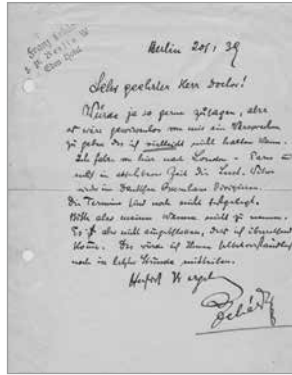 Franz Lehár
Berlin 20/1 39
Sehr geehrter Herr Doctor!
Würde ja so gerne zusagen, aber
es wäre gewissenlos von mir ein Versprechen
zu geben das ich vielleicht nicht halten kann.
Ich fahre von hier nach London – Paris
soll in Zeit die Lust. Witwe
in Deutschen Opernhaus dirigieren.
Die Termine sind noch nicht festgelegt.
Bitte also meinen Namen nicht zu nennen.
Es ist aber nicht ausgeschlossen, dass ich
komme. Das würde ich Ihnen selbstverständlich
noch in letzter Stunde mitteilen.
Herzl
Lehár